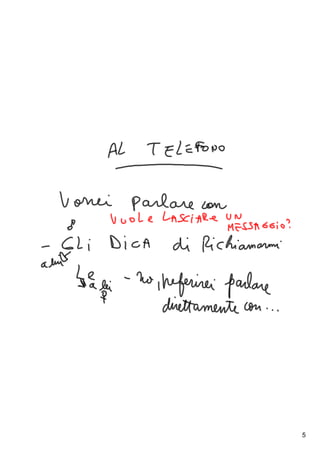 AL TELEFONO
Vorrei parlare con
VUOLE LASCIARE UN
MESSAGGIO?
- GLI DICA di Richiamarmi
a lui
Le
a lei
- no, preferirei parlare
direttamente con...
5